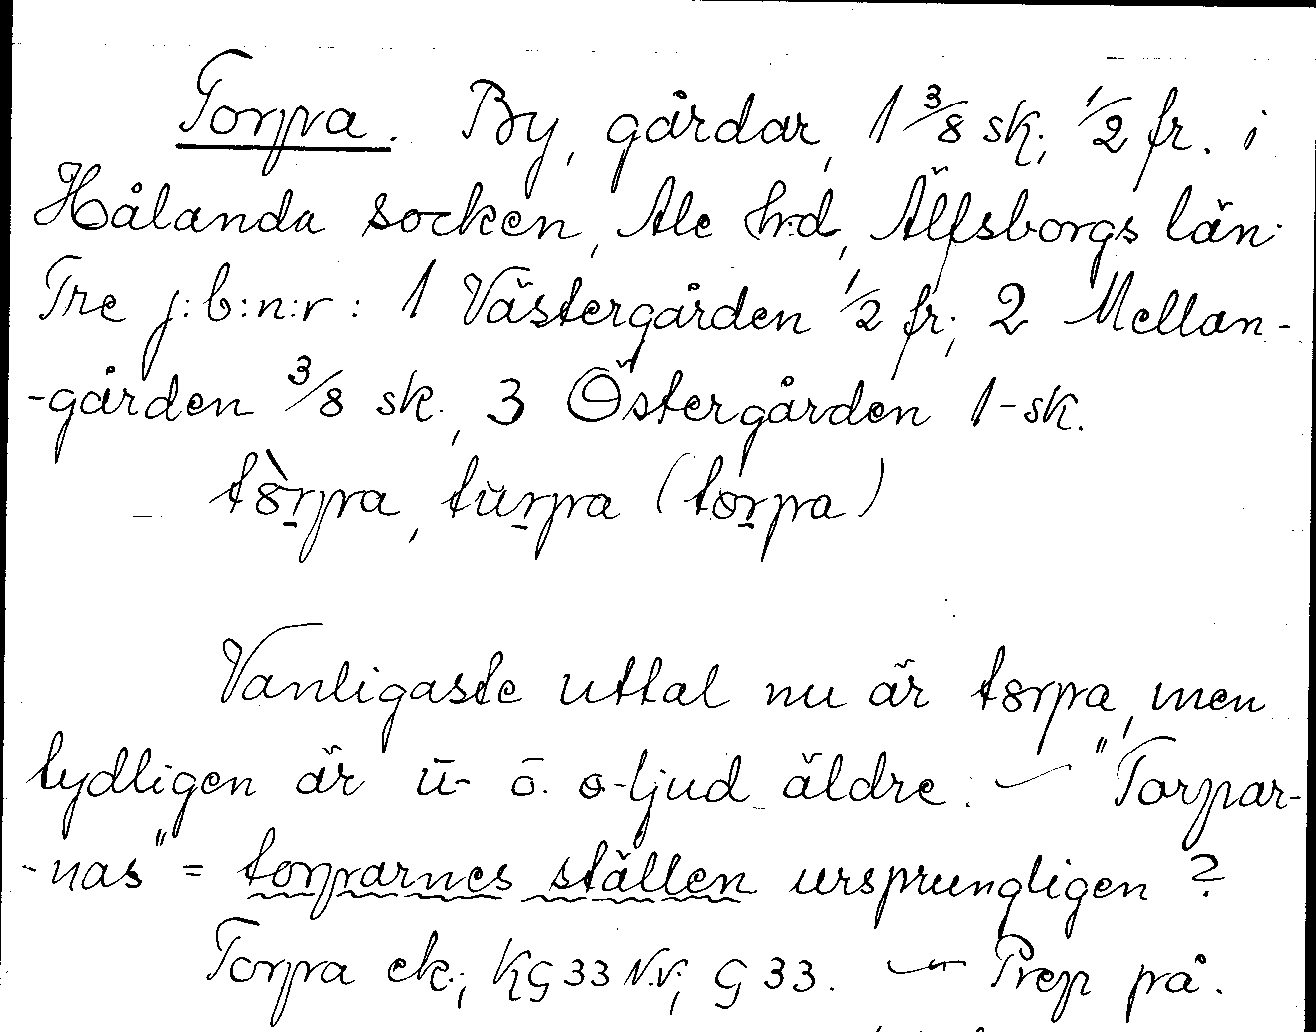 Torpa. By, gårdar, 1 3/8 sk; 1/2 fr. i
Hålanda socken, Ale hrd, Älfsborgs län.
Tre j:b:n:r: 1 Västergården 1/2 fr; 2 Mellan-
-gården 3/8 sk., 3 Östergården 1-sk.
tòrpa, turpa (torpa)
Vanligaste uttal nu är torpa, men
tydligen är ū- ō- o-ljud äldre. — "Torpar-
-nas" = torparnes ställen ursprungligen?
Torpa ek.; KG 33 N.V; G 33. — Prep på.